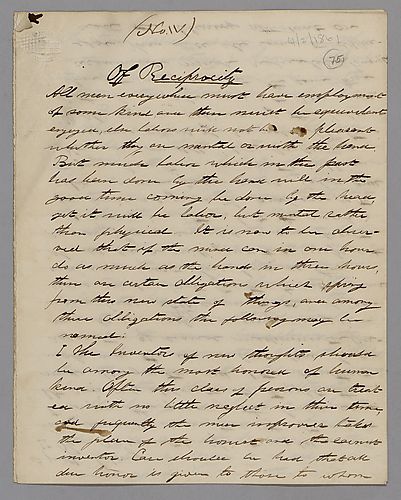 (No. IV)
4/2/1861
(75)
Of Reciprocity
All men everywhere must have employment
of some kind and there must be equivalent
enjoyed, else labors will not be pleasant
whether they are mental or with the hand
But much labor which in the past
has been done by the hand will in the
good time coming be done by the head,
yet it will be labor, but mental rather
than physical. It is now to be obser-
ved that if the mind can in one hour
do as much as the hands in three hours,
there are certain obligations which spring
from this new state of things, and among
these obligations the following may be
named:
1 The Inventors of new thoughts should
be among the most honored of human
kind. Often this class of persons are treat
ed with no little neglect in their time,
and frequently the mere improver takes
the place of the honest and the earnest
inventor. Care should be had that all
due honor is given to those to whom